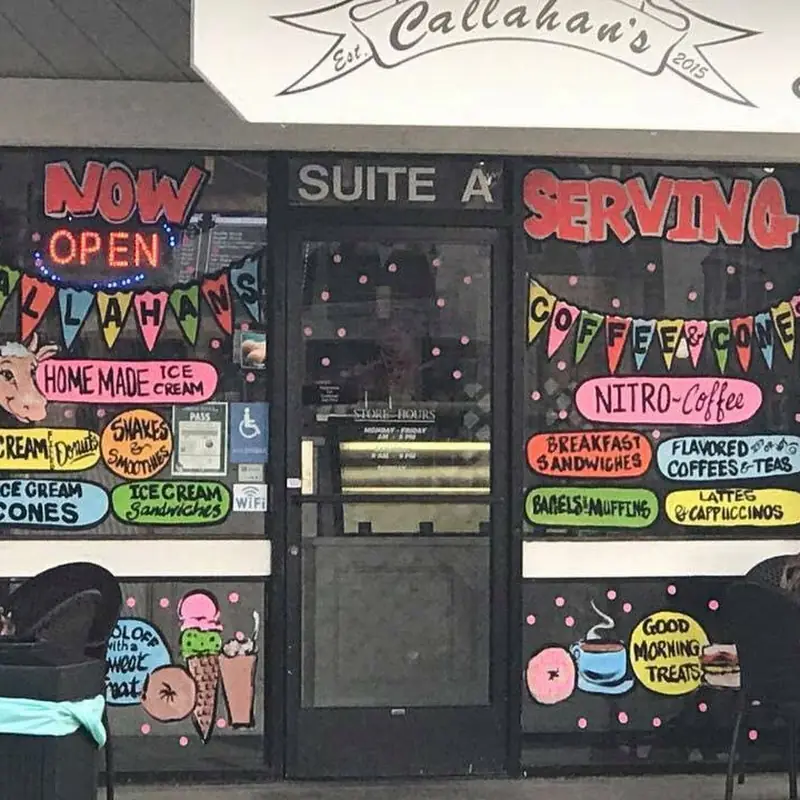 Callahan's
Est. 2015
SUITE A
NOW
OPEN
ALLAHANS
HOMEMADE ICE
CREAM
CREAM Donuts
SHAKES
&
SMOOTHIES
PASS
ICE CREAM
CONES
ICE CREAM
Sandwiches
WiFi
STORE HOURS
MONDAY - FRIDAY
SERVING
COFFEE & CONE
NITRO-Coffee
BREAKFAST
SANDWICHES
FLAVORED
COFFEES & TEAS
BAGELS and MUFFINS
LATTES
& CAPPUCCINOS
OL OFF
with a
weet
eat
GOOD
MORNING
TREATS